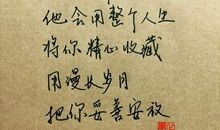 他会用整个人生
将你精心收藏
用漫长岁月
把你妥善安放